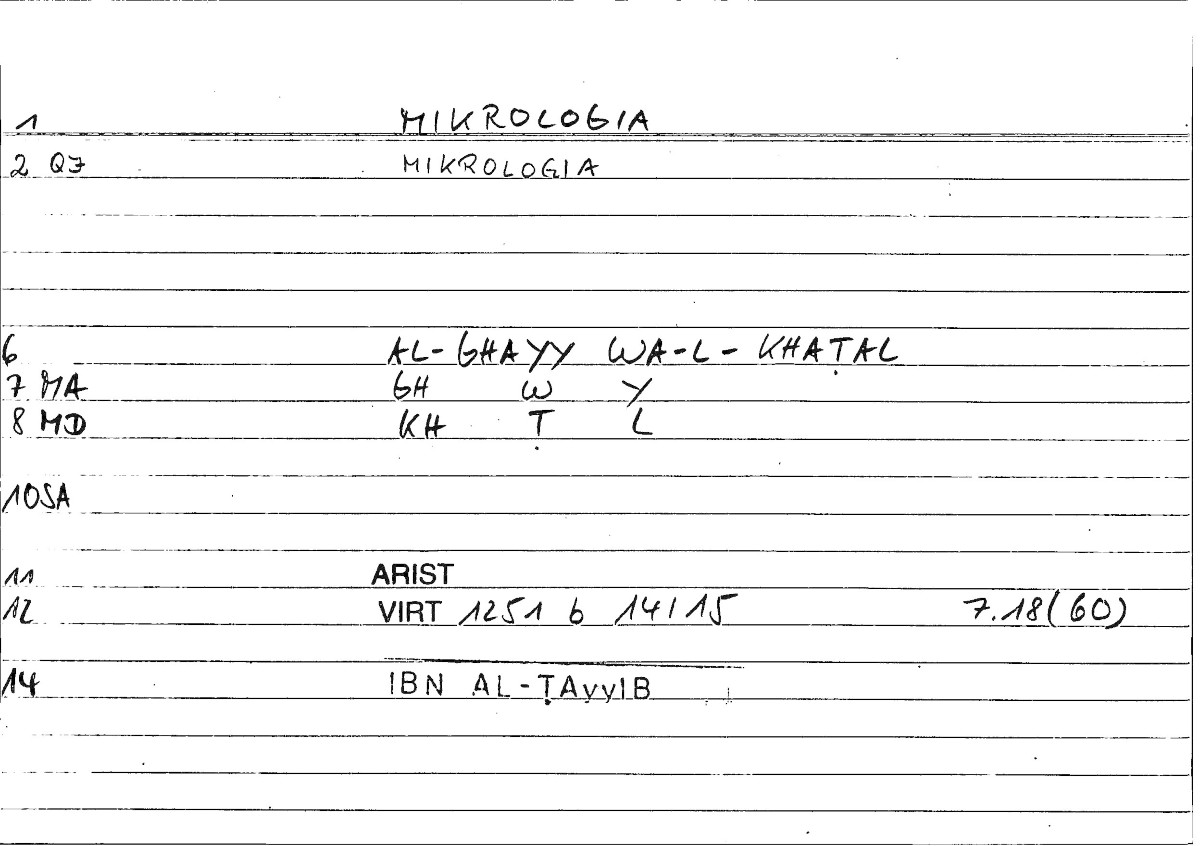 1 MIKROLOGIA
2 QJ MIKROLOGIA
6 AL-GHAYY WA-L-KHAṬAL
7 MA GH W Y
8 MD KH Ṭ L
10SA
11 ARIST
12 VIRT 1251 b 14/15 7.18(60)
14 IBN AL-ṬAyyIB